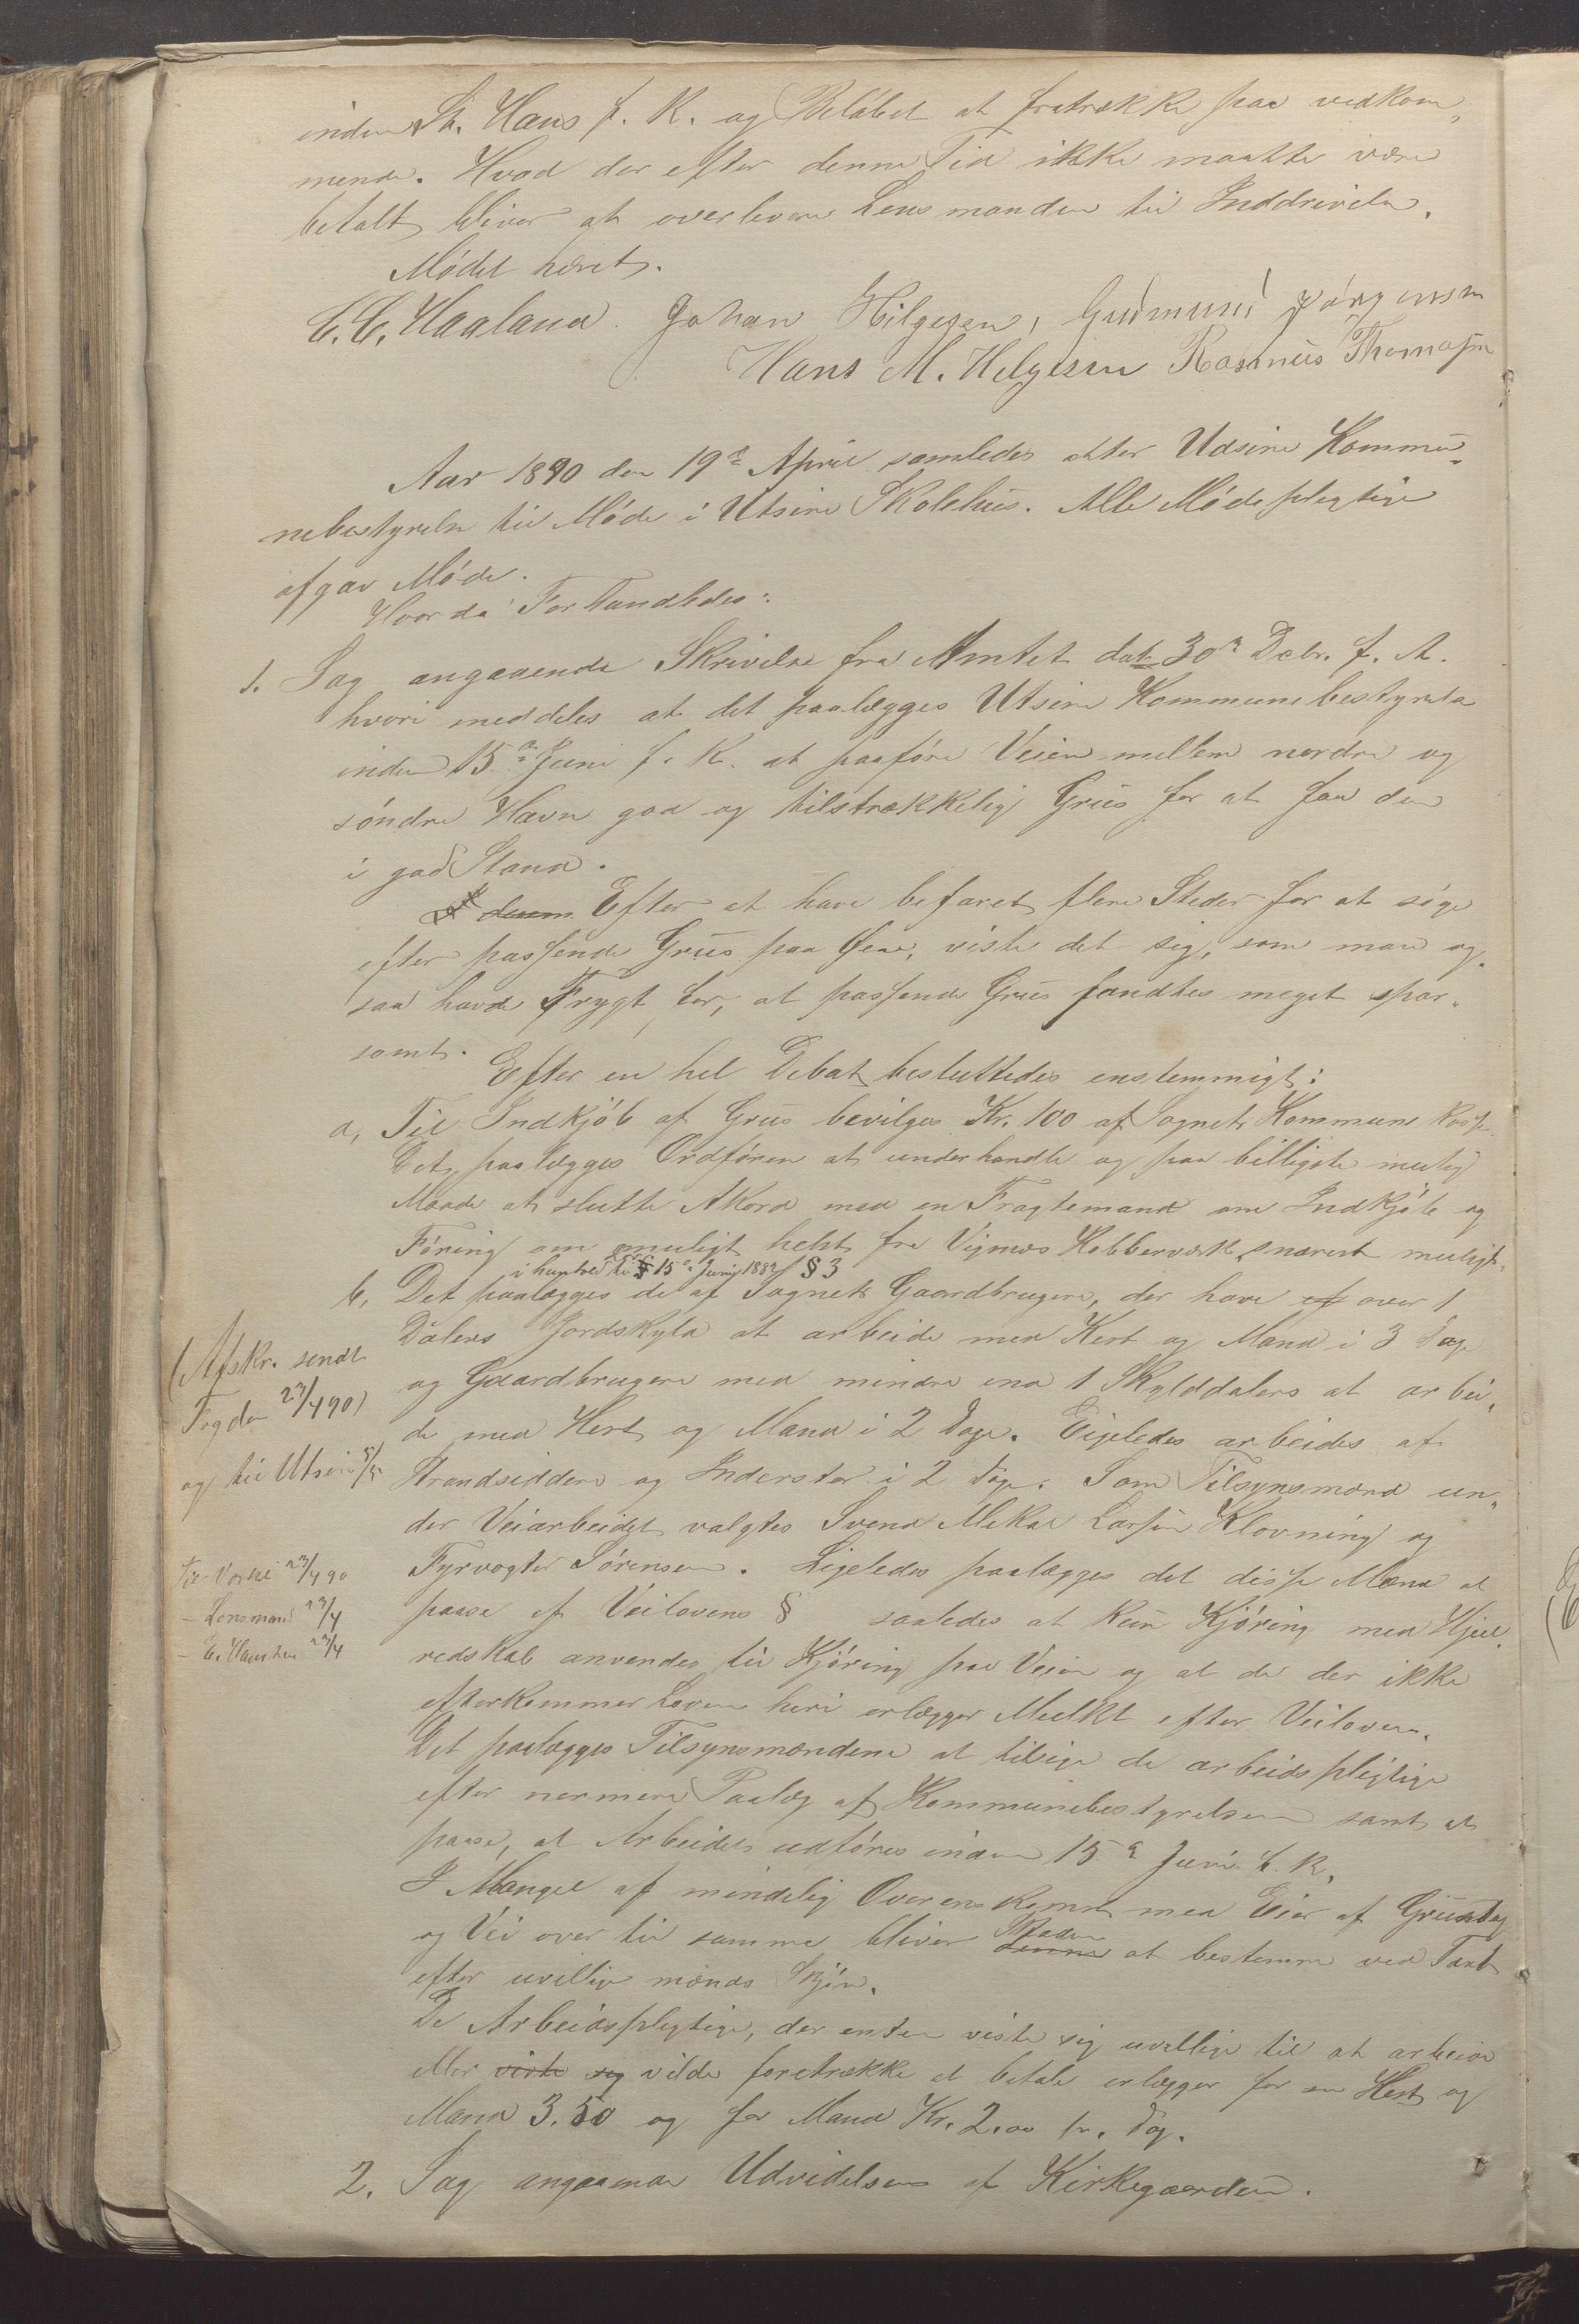 inden St. Hans f. K. og Beløbet at fratrække paa vedkom,
mende. Hvad der efter denne Tid ikke maatte være
betalt bliver at overlevere Lensmanden til Inddrivelse.
Mødet hævet.
C. C. Haaland. Johan Hilgesen, Gudmund Jørgensen
Hans M. Helgesen Rasmus Thomassen
Aar 1890 den 19de April samledes atter Udsire Kommu„
nebestyrelse til Møde i Utsire Skolehus. Alle Mødepligtige
afgav Møde.
Hvor da Forhandledes:
1. Sag angaaende Skrivelse fra Amtet dat 30te Debr. f. A.
hvori meddeles at det paalægges Utsire Kommunebestyrelse
inden 15de Juni f. K. at paaføre Veien mellem nordre og
søndre Havn god og tilstrækkelig Grus for at faa den
i god Stand.
Efter at have befaret flere Steder for at søge
efter passende Grus paa Øen, viste det sig, som man og„
saa havde Frygt for, at passende Grus fandtes meget spar„
somt.
Efter en hel Debat besluttedes enstemmigt:
a, Til Indkjøb af Grus bevilges Kr. 100 af Sognets Kommune Kasse.
Det paalægges Ordføren at underhandle og paa billigste mulig
Maade at slutte Akord med en Fragtemand om Indkjøb og
Føring om muligt helst fra Vigsnes Kobberværk snarest muligt.
i henhold til § 15de Juni 1882 § 3
b, Det paalægges de af Sognets Gaardbrugere, der have af over 1
Dalers Jordskyld at arbeide med Hest og Mand i 3 Dage
og Gaardbrugere med mindre end 1 Skylddalers at arbei„
de med Hest og Mand i 2 Dage. Ligeledes arbeides af
Strandsiddere og Inderster i 2 Dage. Som Tilsynsmænd un„
der Veiarbeidet valgtes Svend Mekal Larsen Klovning og
Fyrvogter Sørensen. Ligeledes paalægges det disse Mænd at
paase af Veilovens § saaledes at kun Kjøring med Hjul„
redskab anvendes til Kjøring paa Veien og at de der ikke
efterkommer Loven heri erlægger Mulkt efter Veiloven.
Det paalægges Tilsynsmændene at tilsige de arbeidspligtige
efter nærmere Paalæg af Kommunebestyrelsen samt at
paase, at Arbeidet udføres inden 15de Juni f. K.
I Mangel af mindelig Overenskomst med Eier af Grustag
og Vei over til samme bliver denne Skaden at bestemme ved Taxt
efter uvillige mænds Skjøn.
De Arbeidspligtige, der enten viste sig uvillige til at arbeide
eller viste sig vilde foretrække at betale erlægger for en Hest og
Mand 3.50 og for Mand Kr. 2.00 pr. Dag.
2. Sag angaaende Udvidelsen af Kirkegaarden.
(Afskr. sendt
Fogden 23/4 90)
og til Utsire 5/5
23/4 90
- Lensmand 23/4
23/4